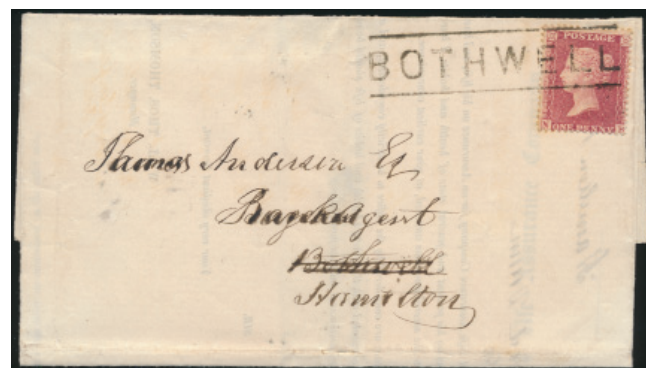 BOTHWELL
POSTAGE
ONE PENNY
Thomas Anderson Esq
Agent
Bothwell
Hamilton